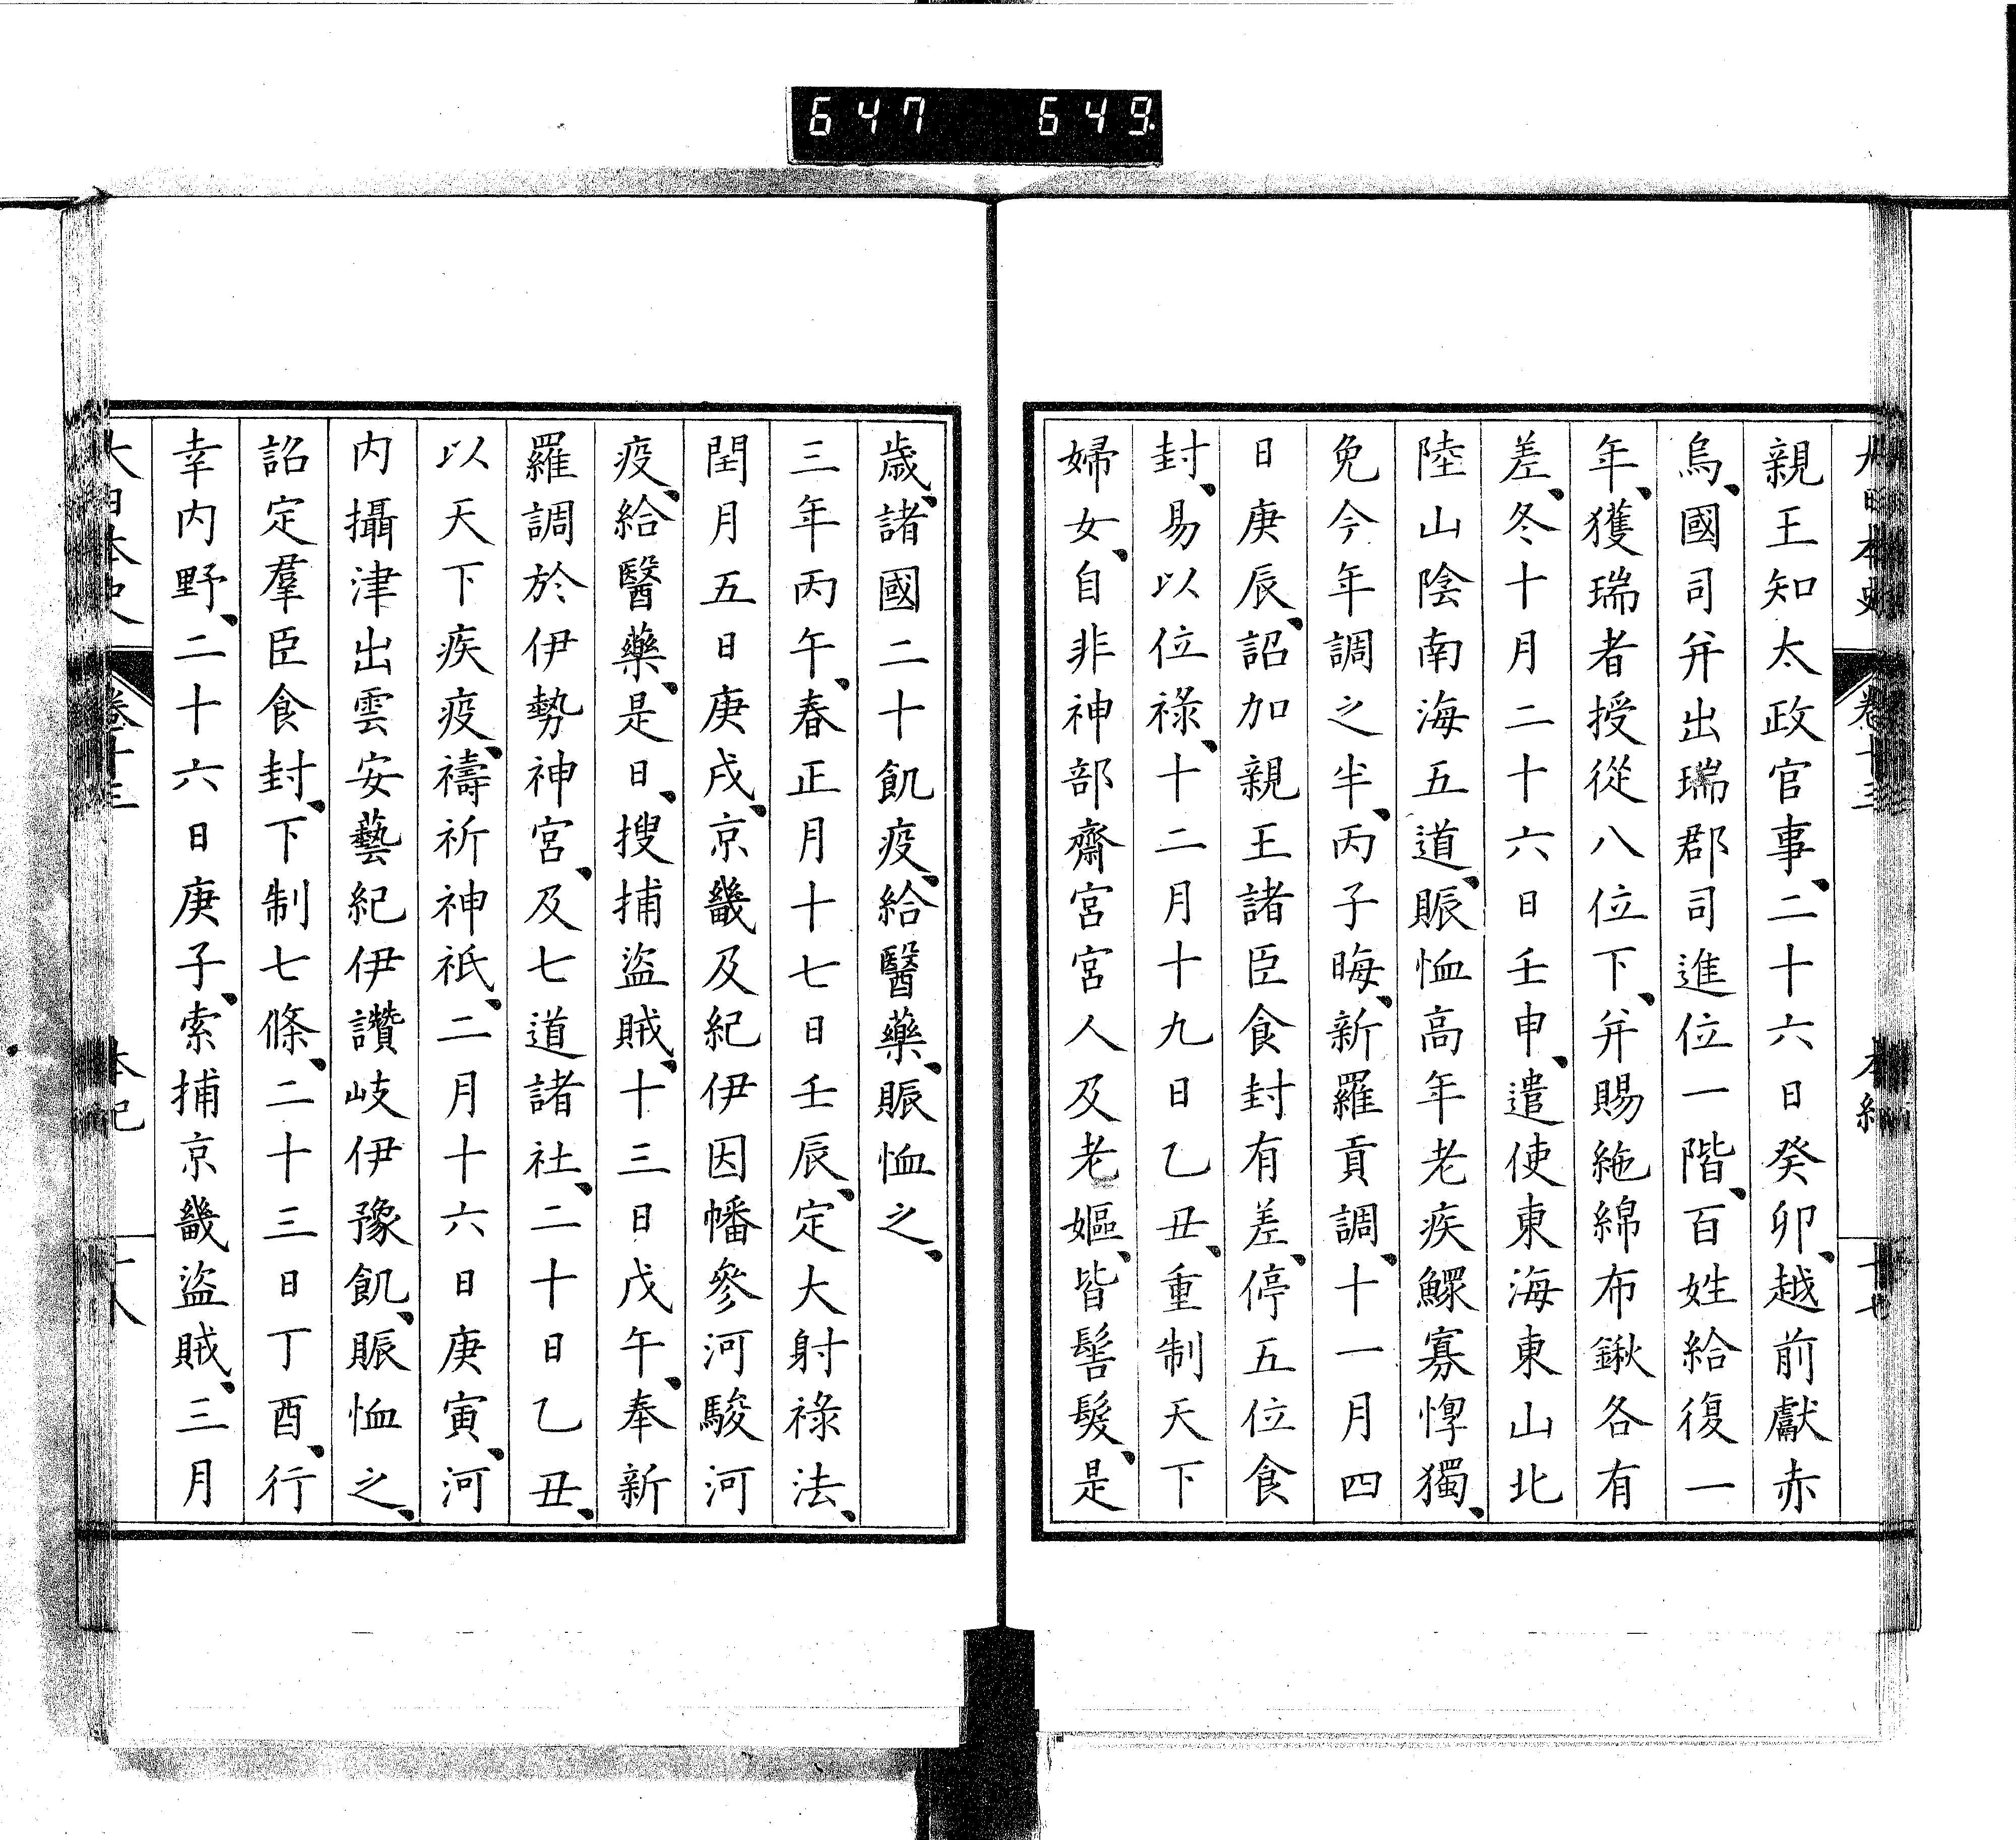 647 649
大日本史 卷十三 本紀 十七
親王知太政官事、二十六日癸卯、越前獻赤
烏、國司并出瑞郡司進位一階、百姓給復一
年、獲瑞者授從八位下、并賜絁綿布鍬各有
差、冬十月二十六日壬申、遣使東海東山北
陸山陰南海五道、賑恤高年老疾鰥寡惸獨、
免今年調之半、丙子晦、新羅貢調、十一月四
日庚辰、詔加親王諸臣食封有差、停五位食
封、易以位祿、十二月十九日乙丑、重制天下
婦女、自非神部齋宮宮人及老嫗、皆髻髮、是
歲、諸國二十飢疫、給醫藥、賑恤之、
三年丙午、春正月十七日壬辰、定大射祿法、
閏月五日庚戌、京畿及紀伊因幡參河駿河
疫、給醫藥、是日、搜捕盜賊、十三日戊午、奉新
羅調於伊勢神宮、及七道諸社、二十日乙丑、
以天下疾疫、禱祈神祇、二月十六日庚寅、河
內攝津出雲安藝紀伊讚岐伊豫飢、賑恤之、
詔定羣臣食封、下制七條、二十三日丁酉、行
幸內野、二十六日庚子、索捕京畿盜賊、三月
大日本史 卷十三 本紀 十八